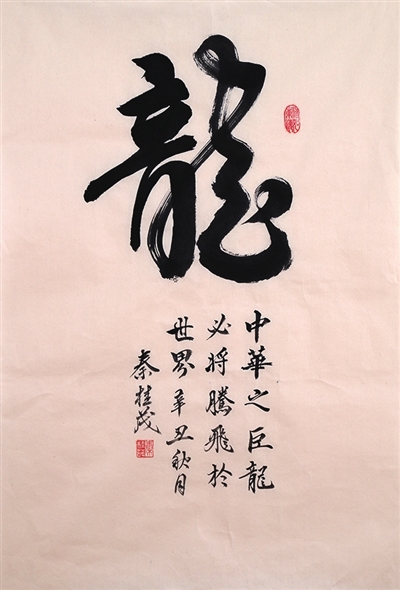 龍
中華之巨龍
必将騰飛於
世界辛丑秋月
秦桂茂